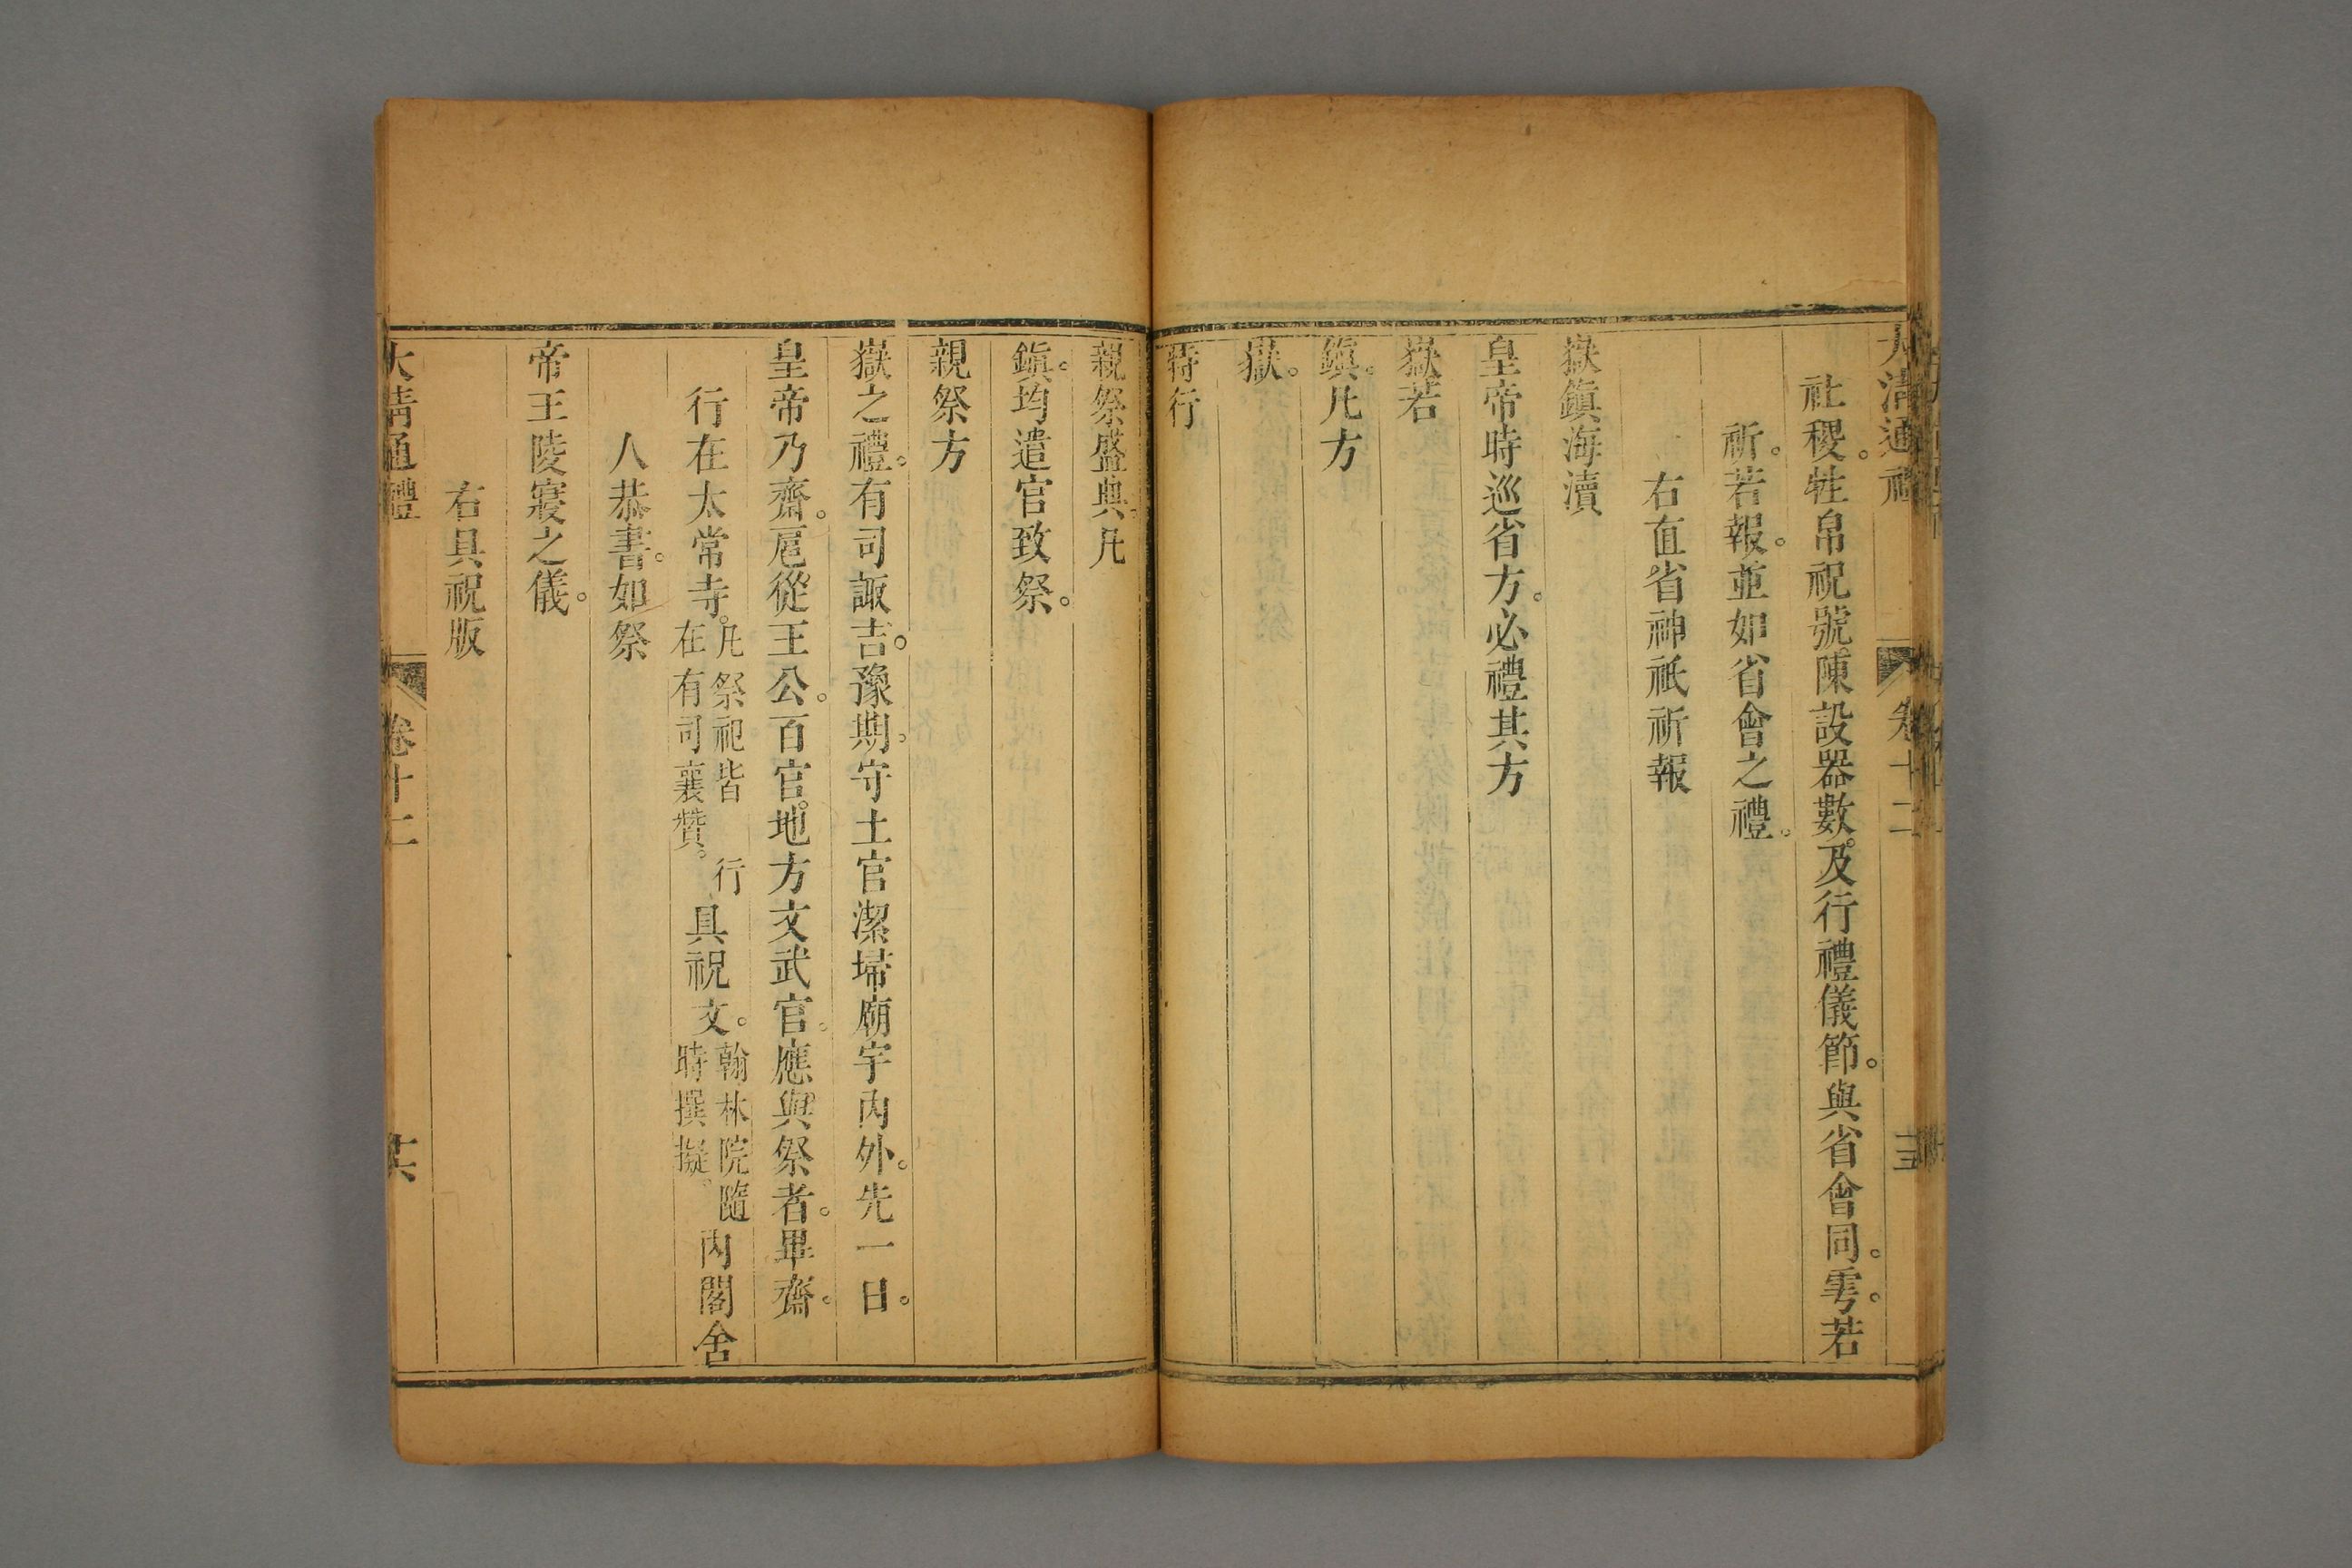 大清通禮 卷十二
社稷。牲帛祝號。陳設器數。及行禮儀節。與省會同。雩。若
祈。若報。並如省會之禮。
右直省神祇祈報
嶽鎮海瀆
皇帝時巡省方。必禮其方
嶽若
鎮。凡方
嶽。
特行
親祭盛典。凡
鎮。均遣官致祭。
親祭方
嶽之禮。有司諏吉。豫期。守土官潔埽廟宇內外。先一日。
皇帝乃齋。扈從王公。百官。地方文武官。應與祭者。畢齋。
行在太常寺。凡祭祀皆行在有司襄贊。具祝文。翰林院隨時撰擬。內閣舍
人恭書。如祭
帝王陵寢之儀。
右具祝版
大清通禮 卷十二